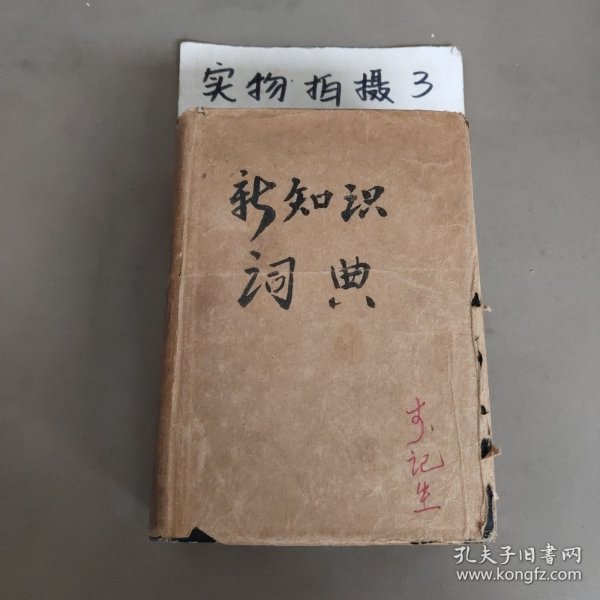 实物拍摄3
新知识
词典
记生
孔夫子旧书网
www.kongfz.com